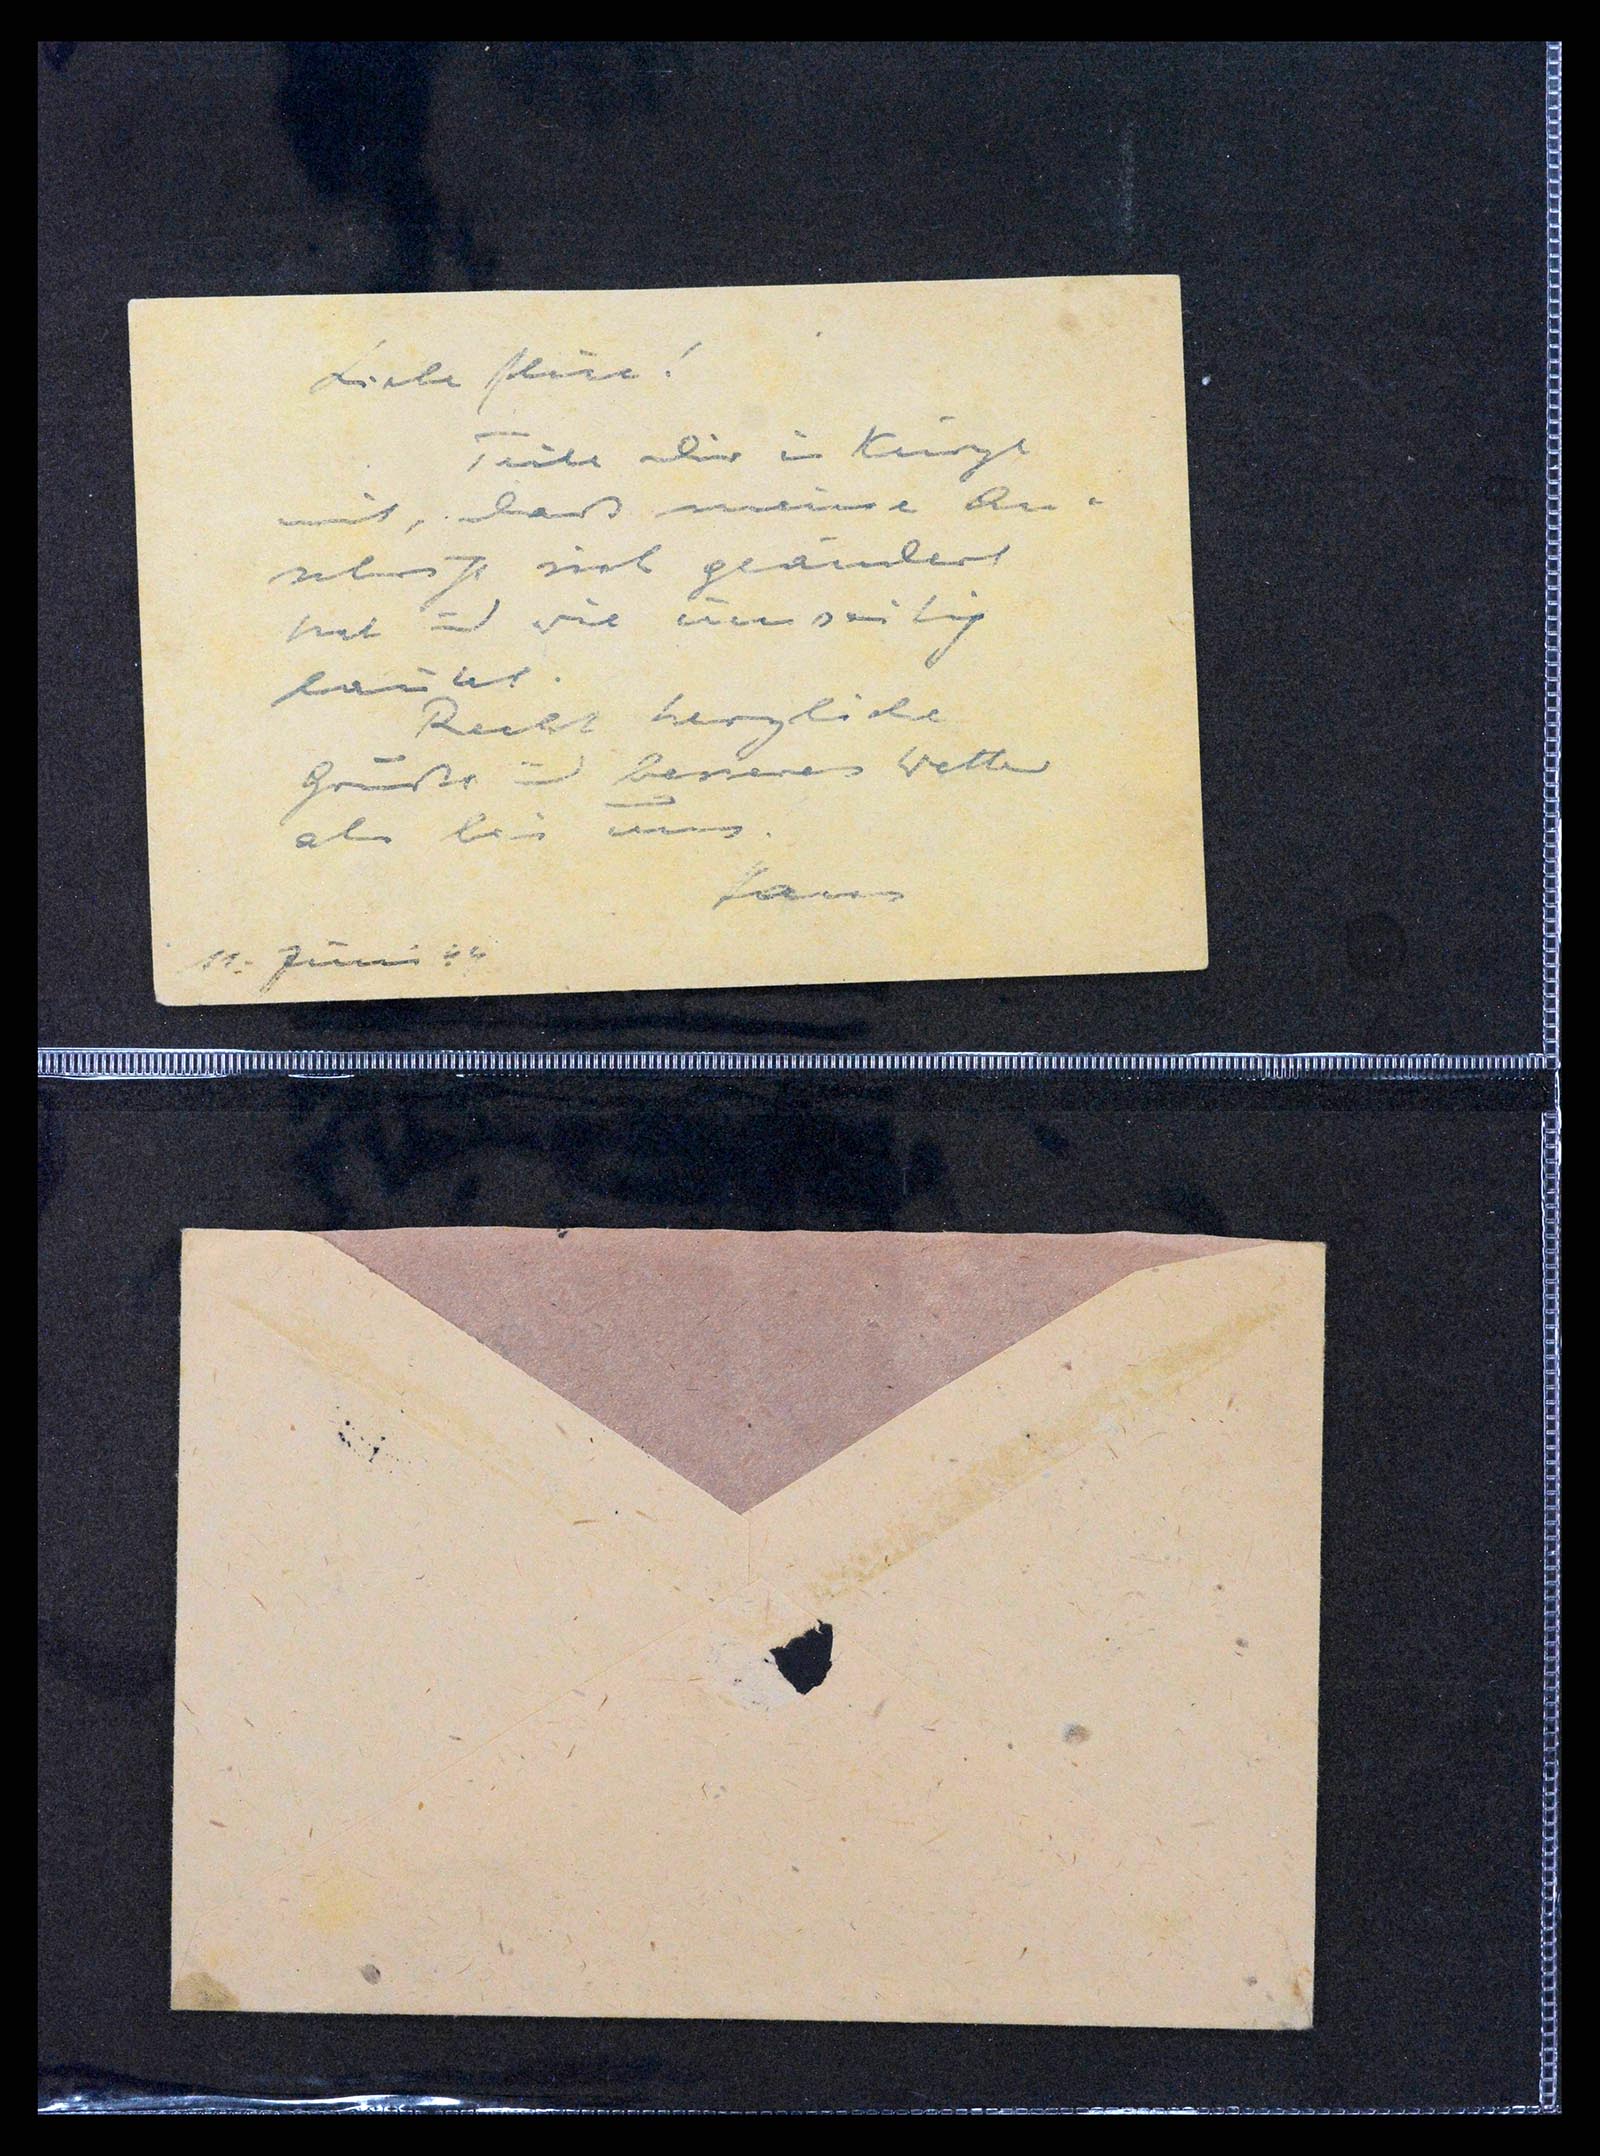 Liebe !
Teile Dir in Kürze
mit, daß meine An-
schrift sich geändert
hat und wie umseitig
lautet.
Recht herzliche
Grüße und besseres Wetter
als bei uns.
Hans
11. Juni 44